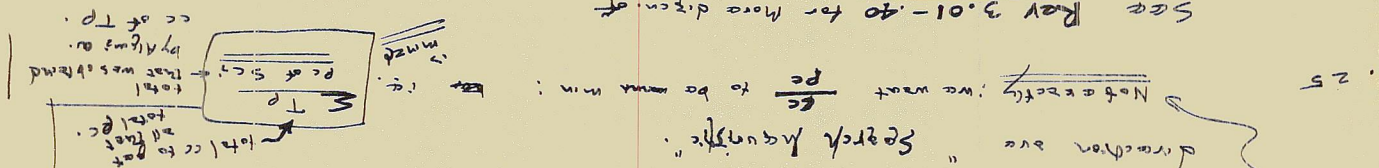 direction are "Search Heuristic".
25 Not exactly: we want cc/pc to be min: i.e.
Σ Tp / pc of Sic.
total cc to get all that total pc.
total that was obtained by Algm: a. cc of Tp.
is mmzd
See Rev 3.01-.40 for More discn. of